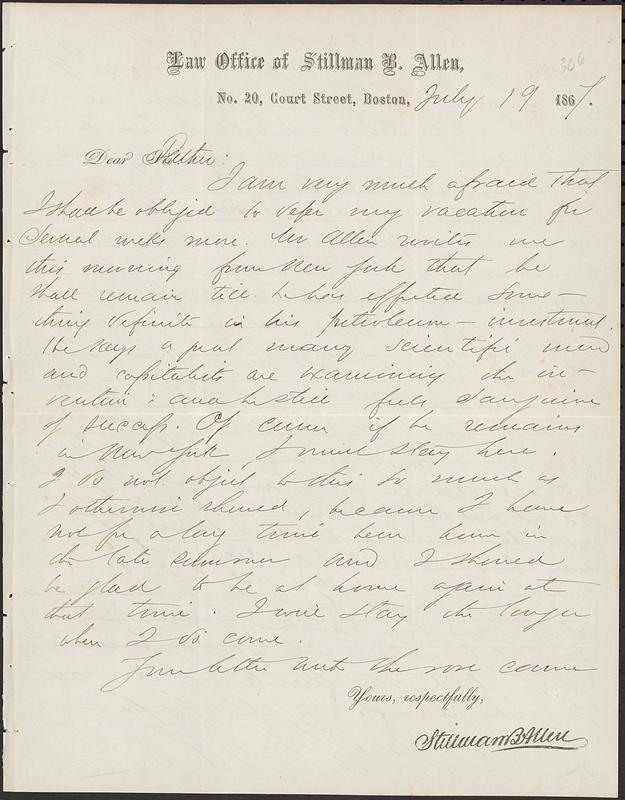 306
Law Office of Stillman B. Allen,
No. 20, Court Street, Boston, July 19 1867.
Dear Father:
I am very much afraid that
I shall be obliged to defer my vacation for
several weeks more. Mr Allen writes me
this morning from New York that he
shall remain till he has effected some-
thing definite in his petroleum-investment.
He says a great many scientific men
and capitalists are examining the in-
vention; and he still feels sanguine
of success. Of course if he remains
in New York, I must stay here.
I do not object to this so much as
I otherwise should, because I have
not for a long time been home in
the late summer and I should
be glad to be at home again at
that time. I will stay the longer
when I do come.
Your letter with the rose came
Yours, respectfully,
Stillman B Allen